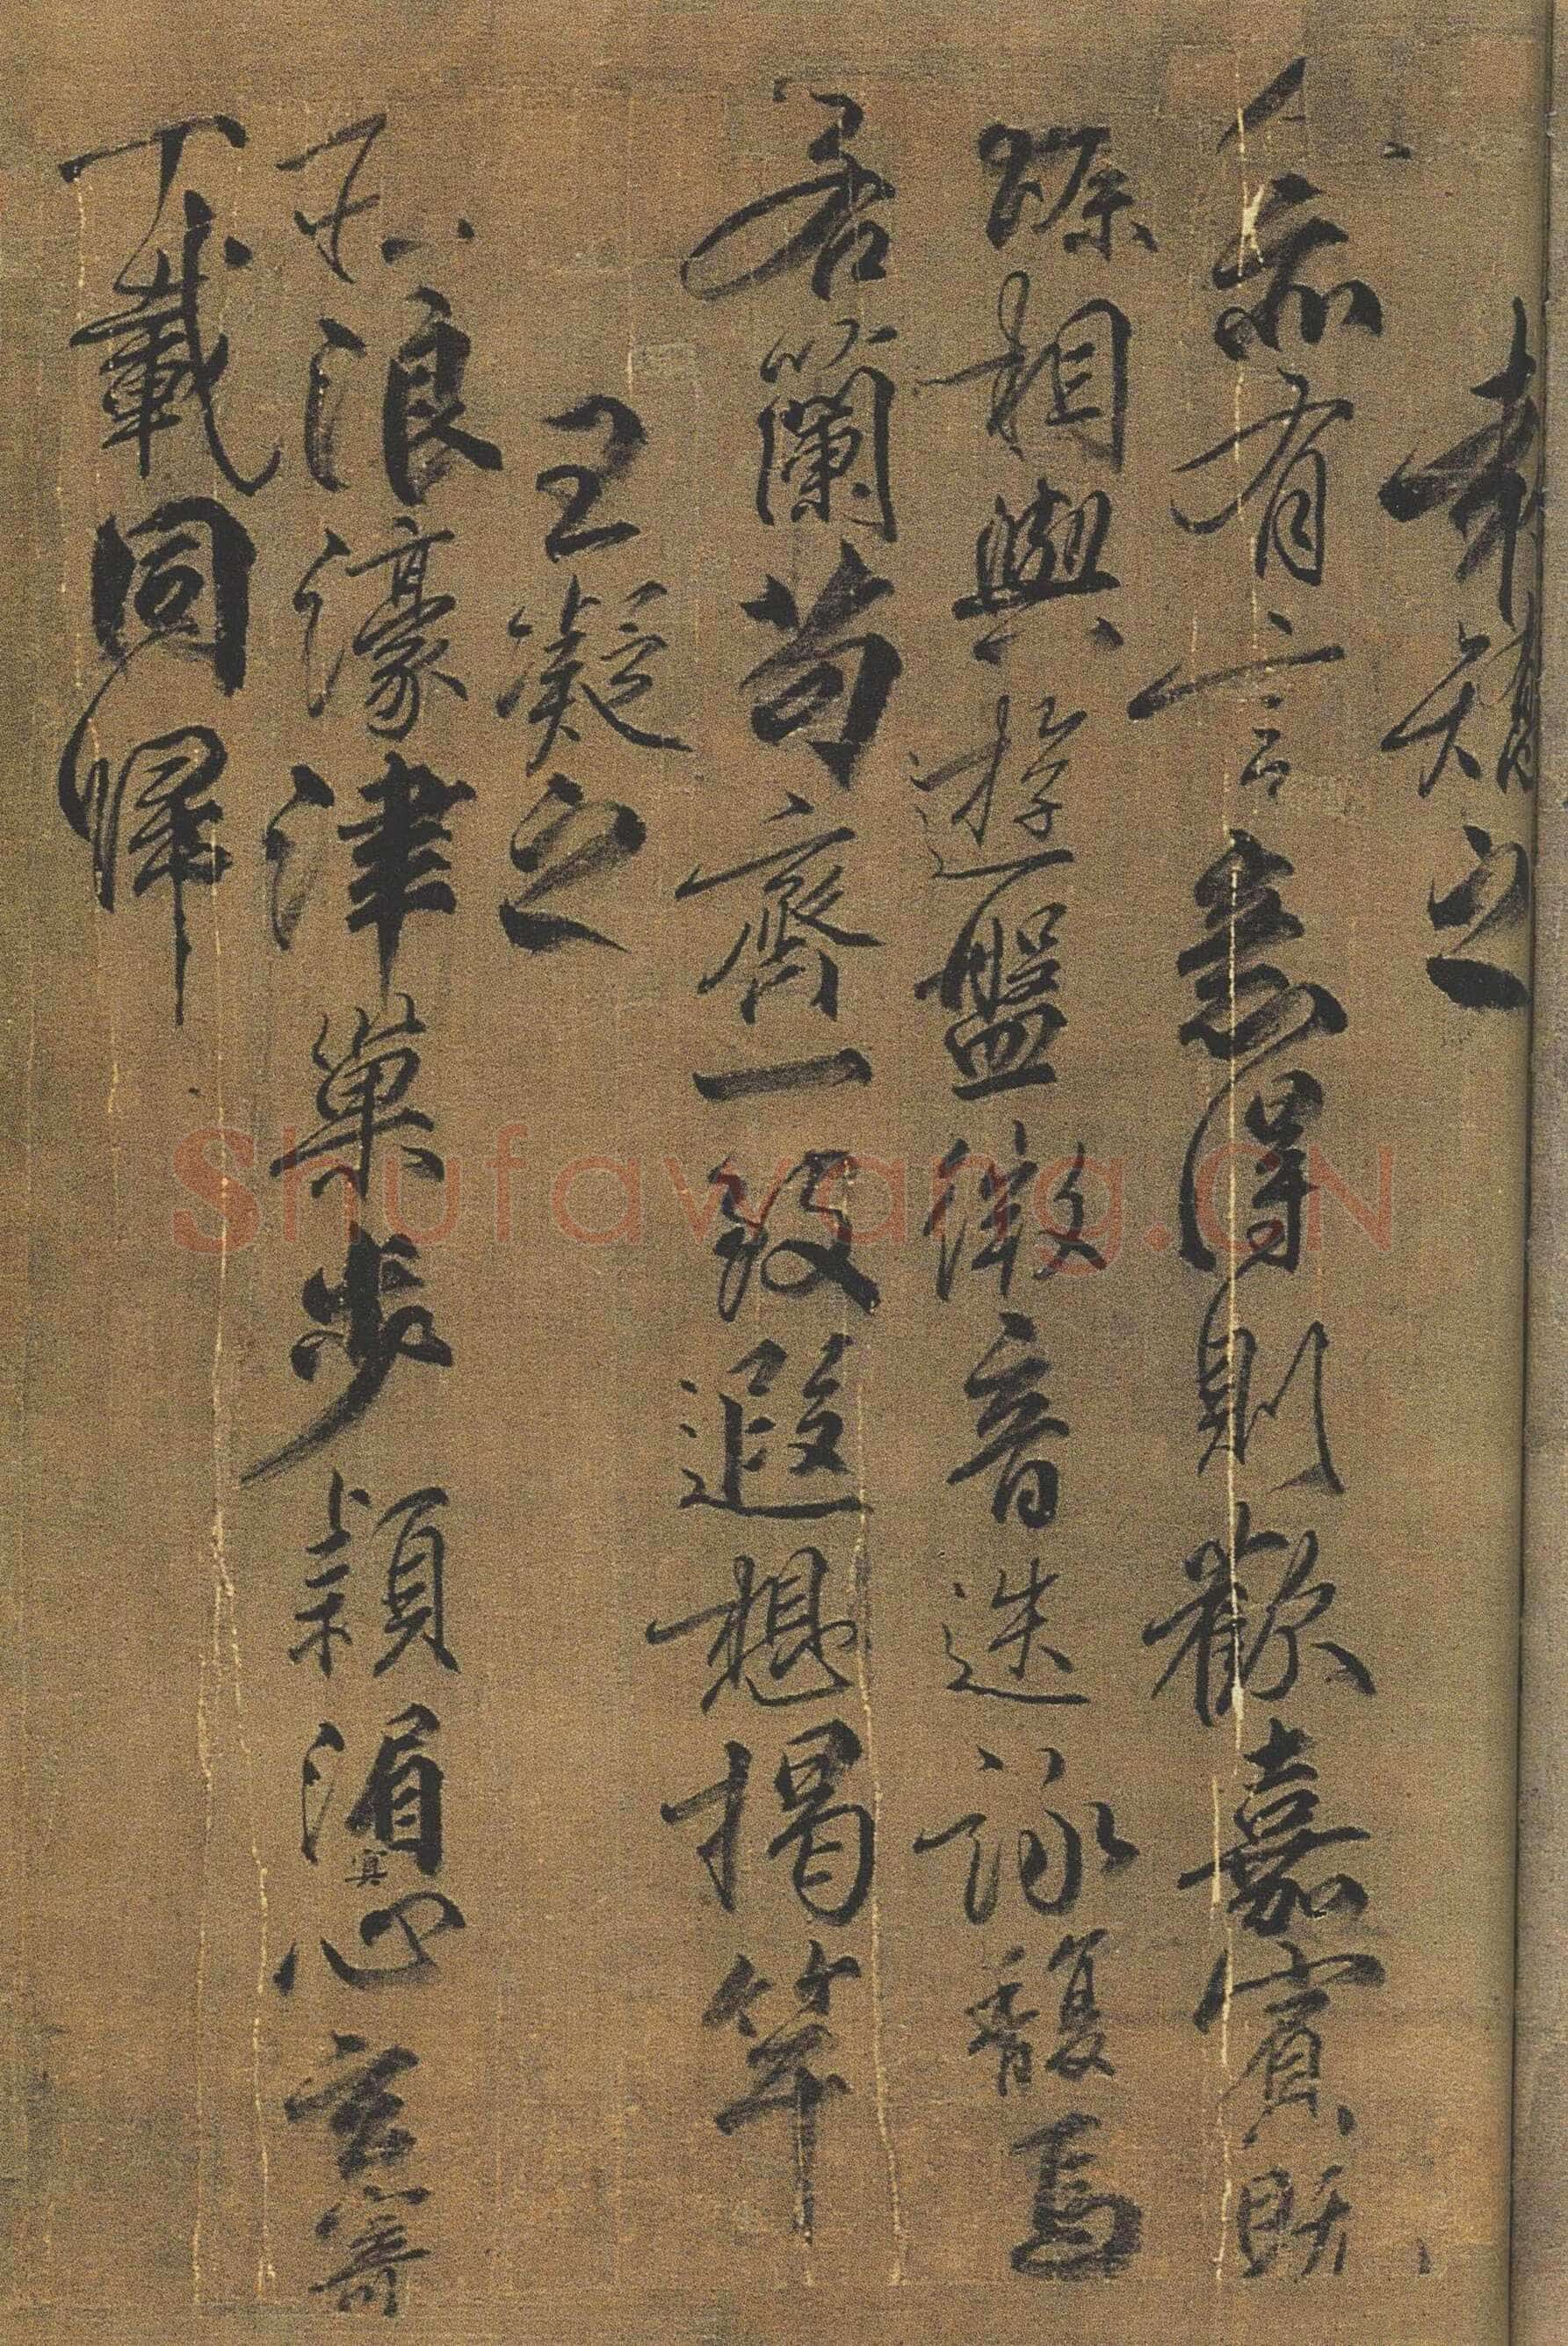 袁矯之
人亦有言意得則歡嘉賓既
臻相與遊盤微音迭詠馥焉
若蘭苟齊一致遐想揭竿
王凝之
莊浪濠津巢步潁湄冥心玄寄
千載同歸
Shufawang.CN